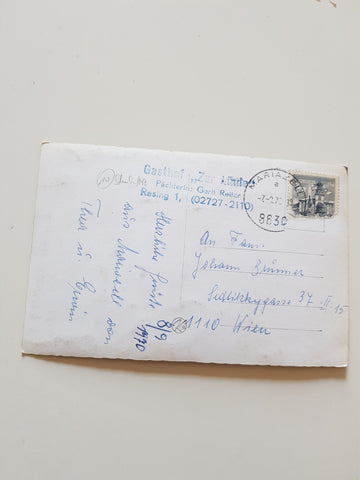 Gasthof „Zur Linde"
Pächterin: Gerti Reiter
Rasing 1, (02727-2110)
MARIAZELL
a
8630
Herzliche Grüße
aus Mariazell von
8/9
1970
An Fam.
Johann Brunner
Sedlitzkygasse 37
II 15
1110 Wien